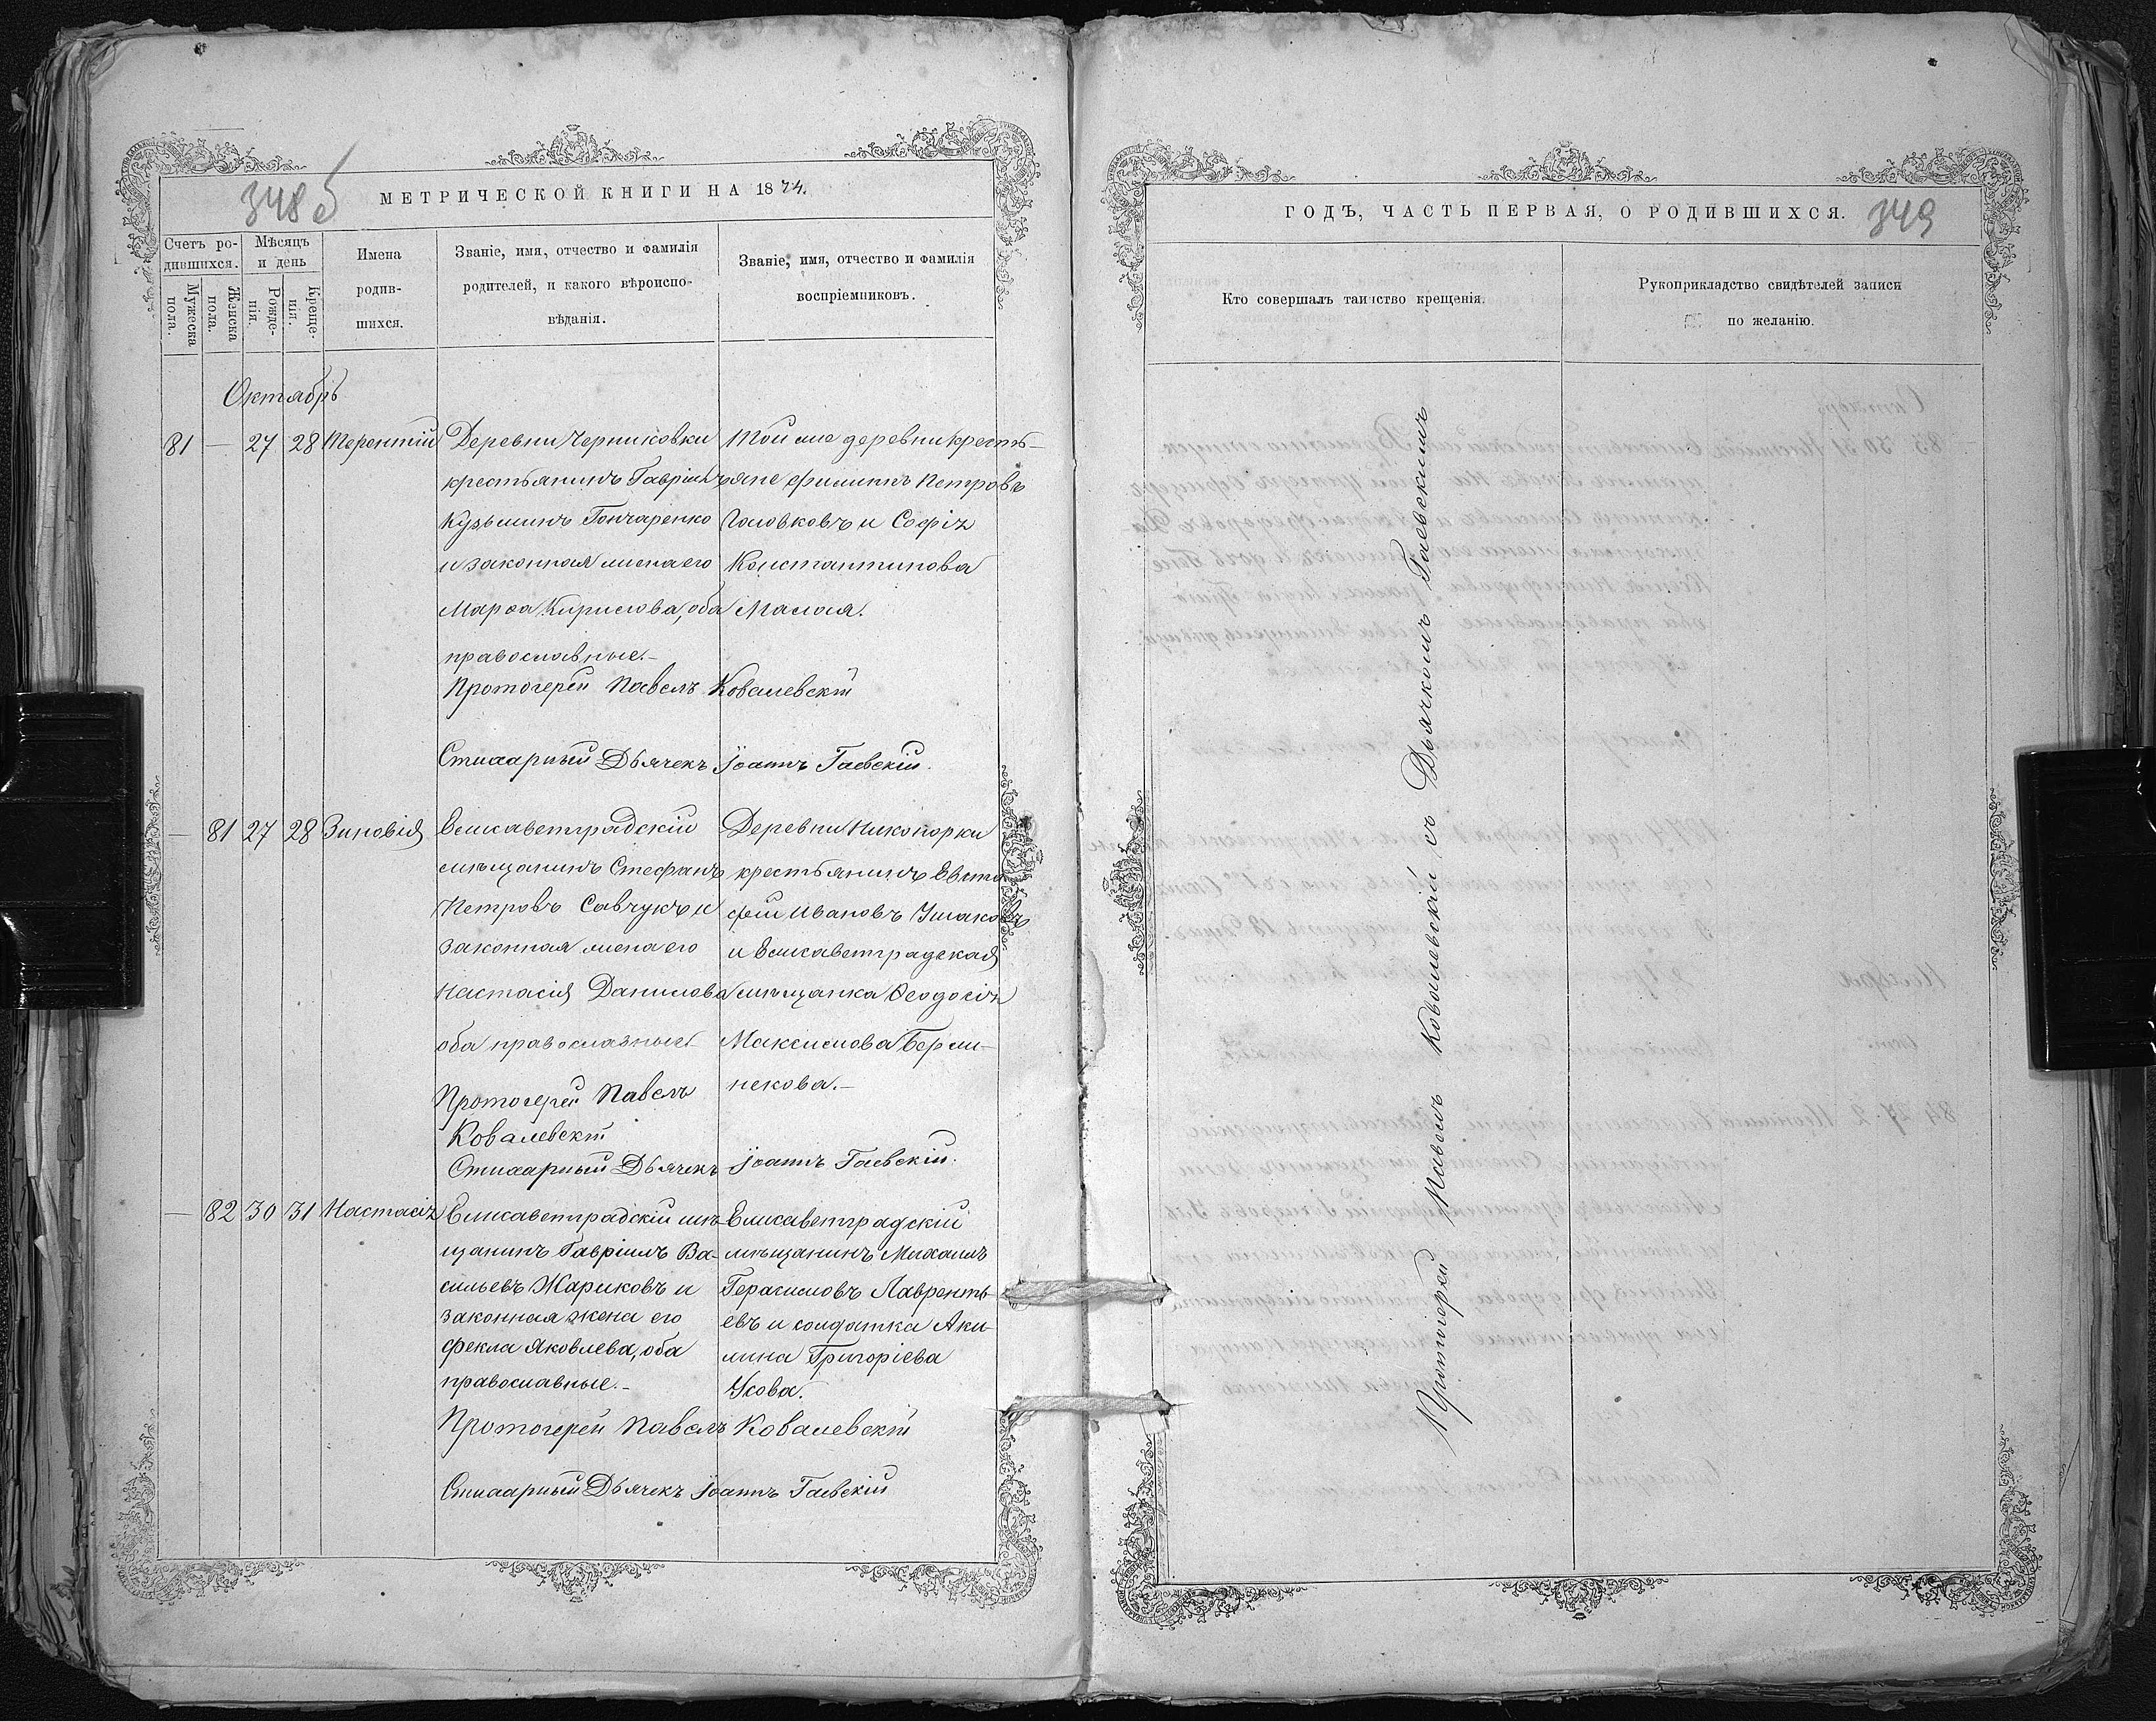 348 об
МЕТРИЧЕСКОЙ КНИГИ НА 1874.
Счетъ ро-
дившихся.
Мужеска
пола.
Женска
пола.
Мѣсяцъ
и день
Рожде-
нія.
Креще-
нія.
Имена
родив-
шихся.
Званіе, имя, отчество и фамилія
родителей, и какого вѣроиспо-
вѣданія.
Званіе, имя, отчество и фамилія
воспріемниковъ.
Октябрь
81 — 27 28 Терентій
Деревни Черниковки
крестьянинъ Гавріилъ
Кузьминъ Гончаренко
и законная жена его
Марѳа Кирилова, оба
православные.–
Той же деревни кресть-
яне Филиппъ Петровъ
Головковъ и Софія
Константинова
Малая.
Протоіерей Павелъ Ковалевскій
Стихарный Дьячекъ Іоаннъ Гаевскій.
— 81 27 28 Зиновія
Елисаветградскій
мѣщанинъ Стефанъ
Петровъ Савчукъ и
законная жена его
Настасія Данилова
оба православные
Деревни Никопорки
крестьянинъ Евста-
фій Ивановъ Ушаковъ
и Елисаветградская
мѣщанка Ѳеодосія
Максимова Берли-
некова.–
Протоіерей Павелъ
Ковалевскій
Стихарный Дьячекъ Іоаннъ Гаевскій.
— 82 30 31 Настасія
Елисаветградскій мѣ-
щанинъ Гавріилъ Ва-
сильевъ Жариковъ и
законная жена его
Фекла Яковлева, оба
православные.–
Елисаветградскій
мѣщанинъ Михаилъ
Герасимовъ Лавренть-
евъ и солдатка Аки-
лина Григоріева
Усова.
Протоіерей Павелъ Ковалевскій
Стихарный Дьячекъ Іоаннъ Гаевскій
ГОДЪ, ЧАСТЬ ПЕРВАЯ, О РОДИВШИХСЯ.
349
Кто совершалъ таинство крещенія.
Рукоприкладство свидѣтелей записи
по желанію.
Протоіерей Павелъ Ковалевскій съ Дьячкомъ Гаевскимъ